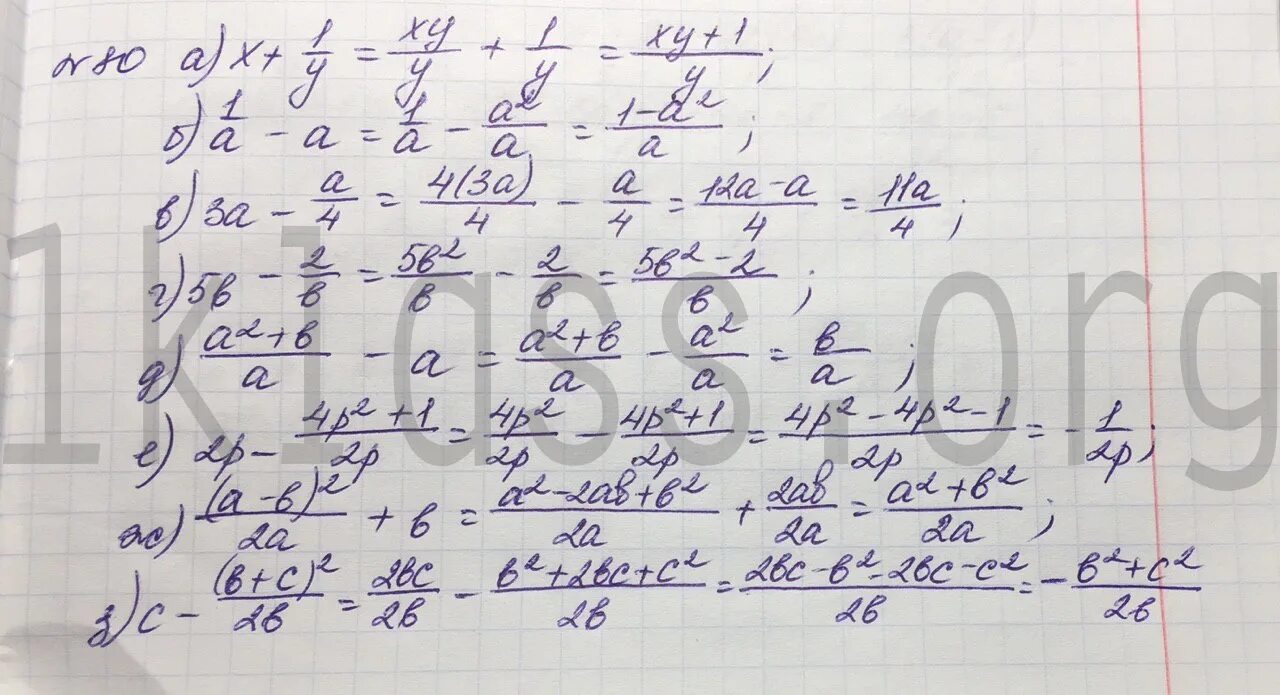 №80 а) x + 1/y = xy/y + 1/y = (xy+1)/y;
б) 1/a - a = 1/a - a²/a = (1-a²)/a;
в) 3a - a/4 = 4(3a)/4 - a/4 = (12a-a)/4 = 11a/4;
г) 5в - 2/в = 5в²/в - 2/в = (5в²-2)/в;
д) (a²+в)/a - a = (a²+в)/a - a²/a = в/a;
е) 2p - (4p²+1)/2p = 4p²/2p - (4p²+1)/2p = (4p²-4p²-1)/2p = -1/2p;
ж) (a-в)²/2a + в = (a²-2aв+в²)/2a + 2aв/2a = (a²+в²)/2a;
з) c - (в+c)²/2в = 2вc/2в - (в²+2вc+c²)/2в = (2вc-в²-2вc-c²)/2в = -(в²+c²)/2в
1klass.org